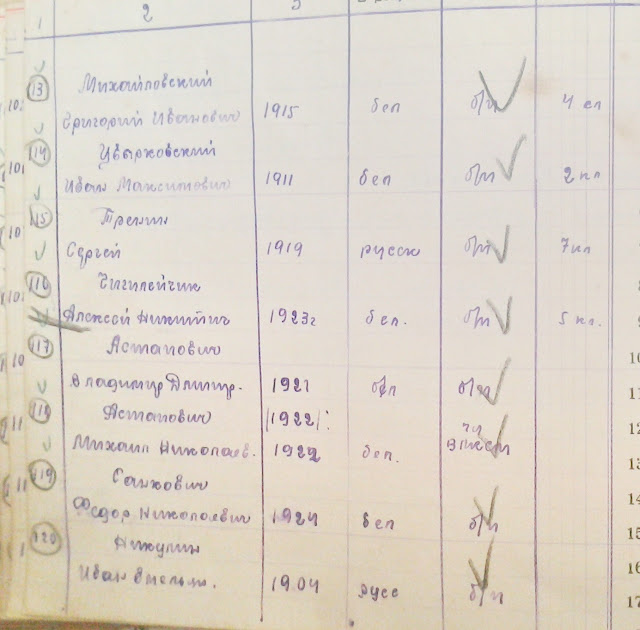 1 2 3
13 Михайловский
Григорий Иванович 1915 бел б/п 4 кл
114 Цвырковский
Иван Максимович 1911 бел б/п 2 кл
115 Тренин
Сергей 1919 русск б/п 7 кл
116 Чигилейчик
Алексей Никитич 1923г бел. б/п 5 кл.
117 Астапович
Владимир Дмитр. 1921 б/п б/п
118 Астапович /1922/:
Михаил Николаев. 1922 бел. чл ВЛКСМ
119 Санкович
Федор Николаевич 1924 бел б/п
120 Никулин
Иван Емельян. 1904 русс б/п
10
11
12
13
14
15
16
17